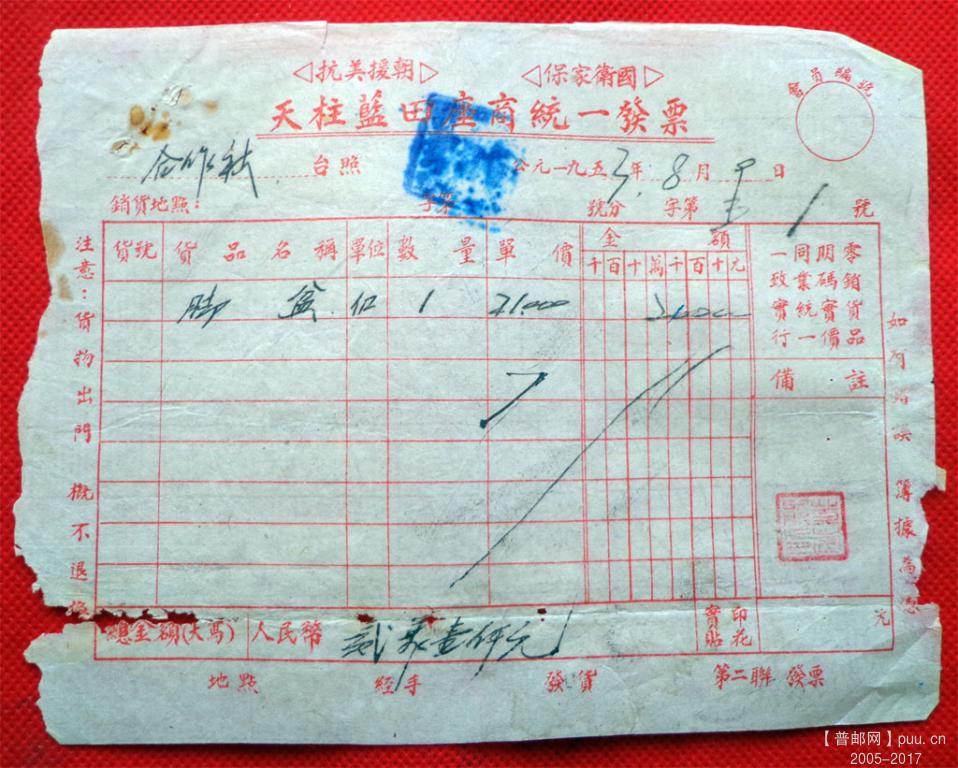 ◁抗美援朝▷ ◁保家衛國▷
會員編號
天柱藍田座商統一發票
合作社 台照
公元一九五3年8月9日
銷貨地點： 字第 號分 字第 1 號
貨號 貨品名稱 單位 數量 單價 金額
千百十萬千百十元
脚盆 1 21000 21000
零銷貨品
明碼實價
同業統一
一致實行
備註
注意：貨物出門概不退換
如有錯誤 簿據為憑
總金額(大寫) 人民幣 弍萬壹仟元
實貼印花
元
地點 經手 發貨 第二聯 發票
【普邮网】puu.cn
2005-2017